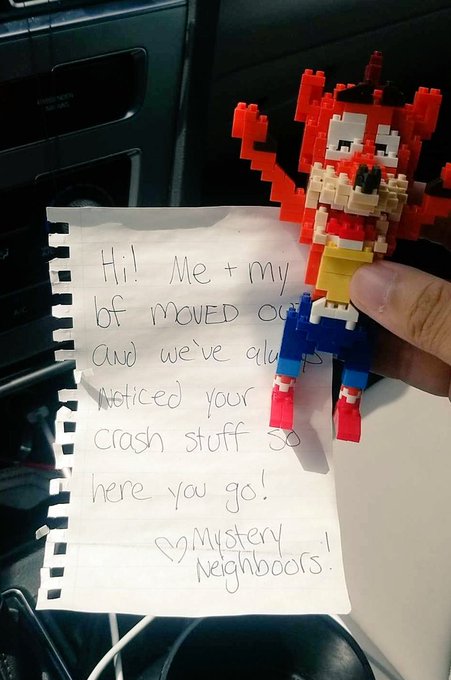 Hi! Me + my
bf MOVED OUT
and we've always
noticed your
crash stuff so
here you go!
♡ Mystery
Neighboors!